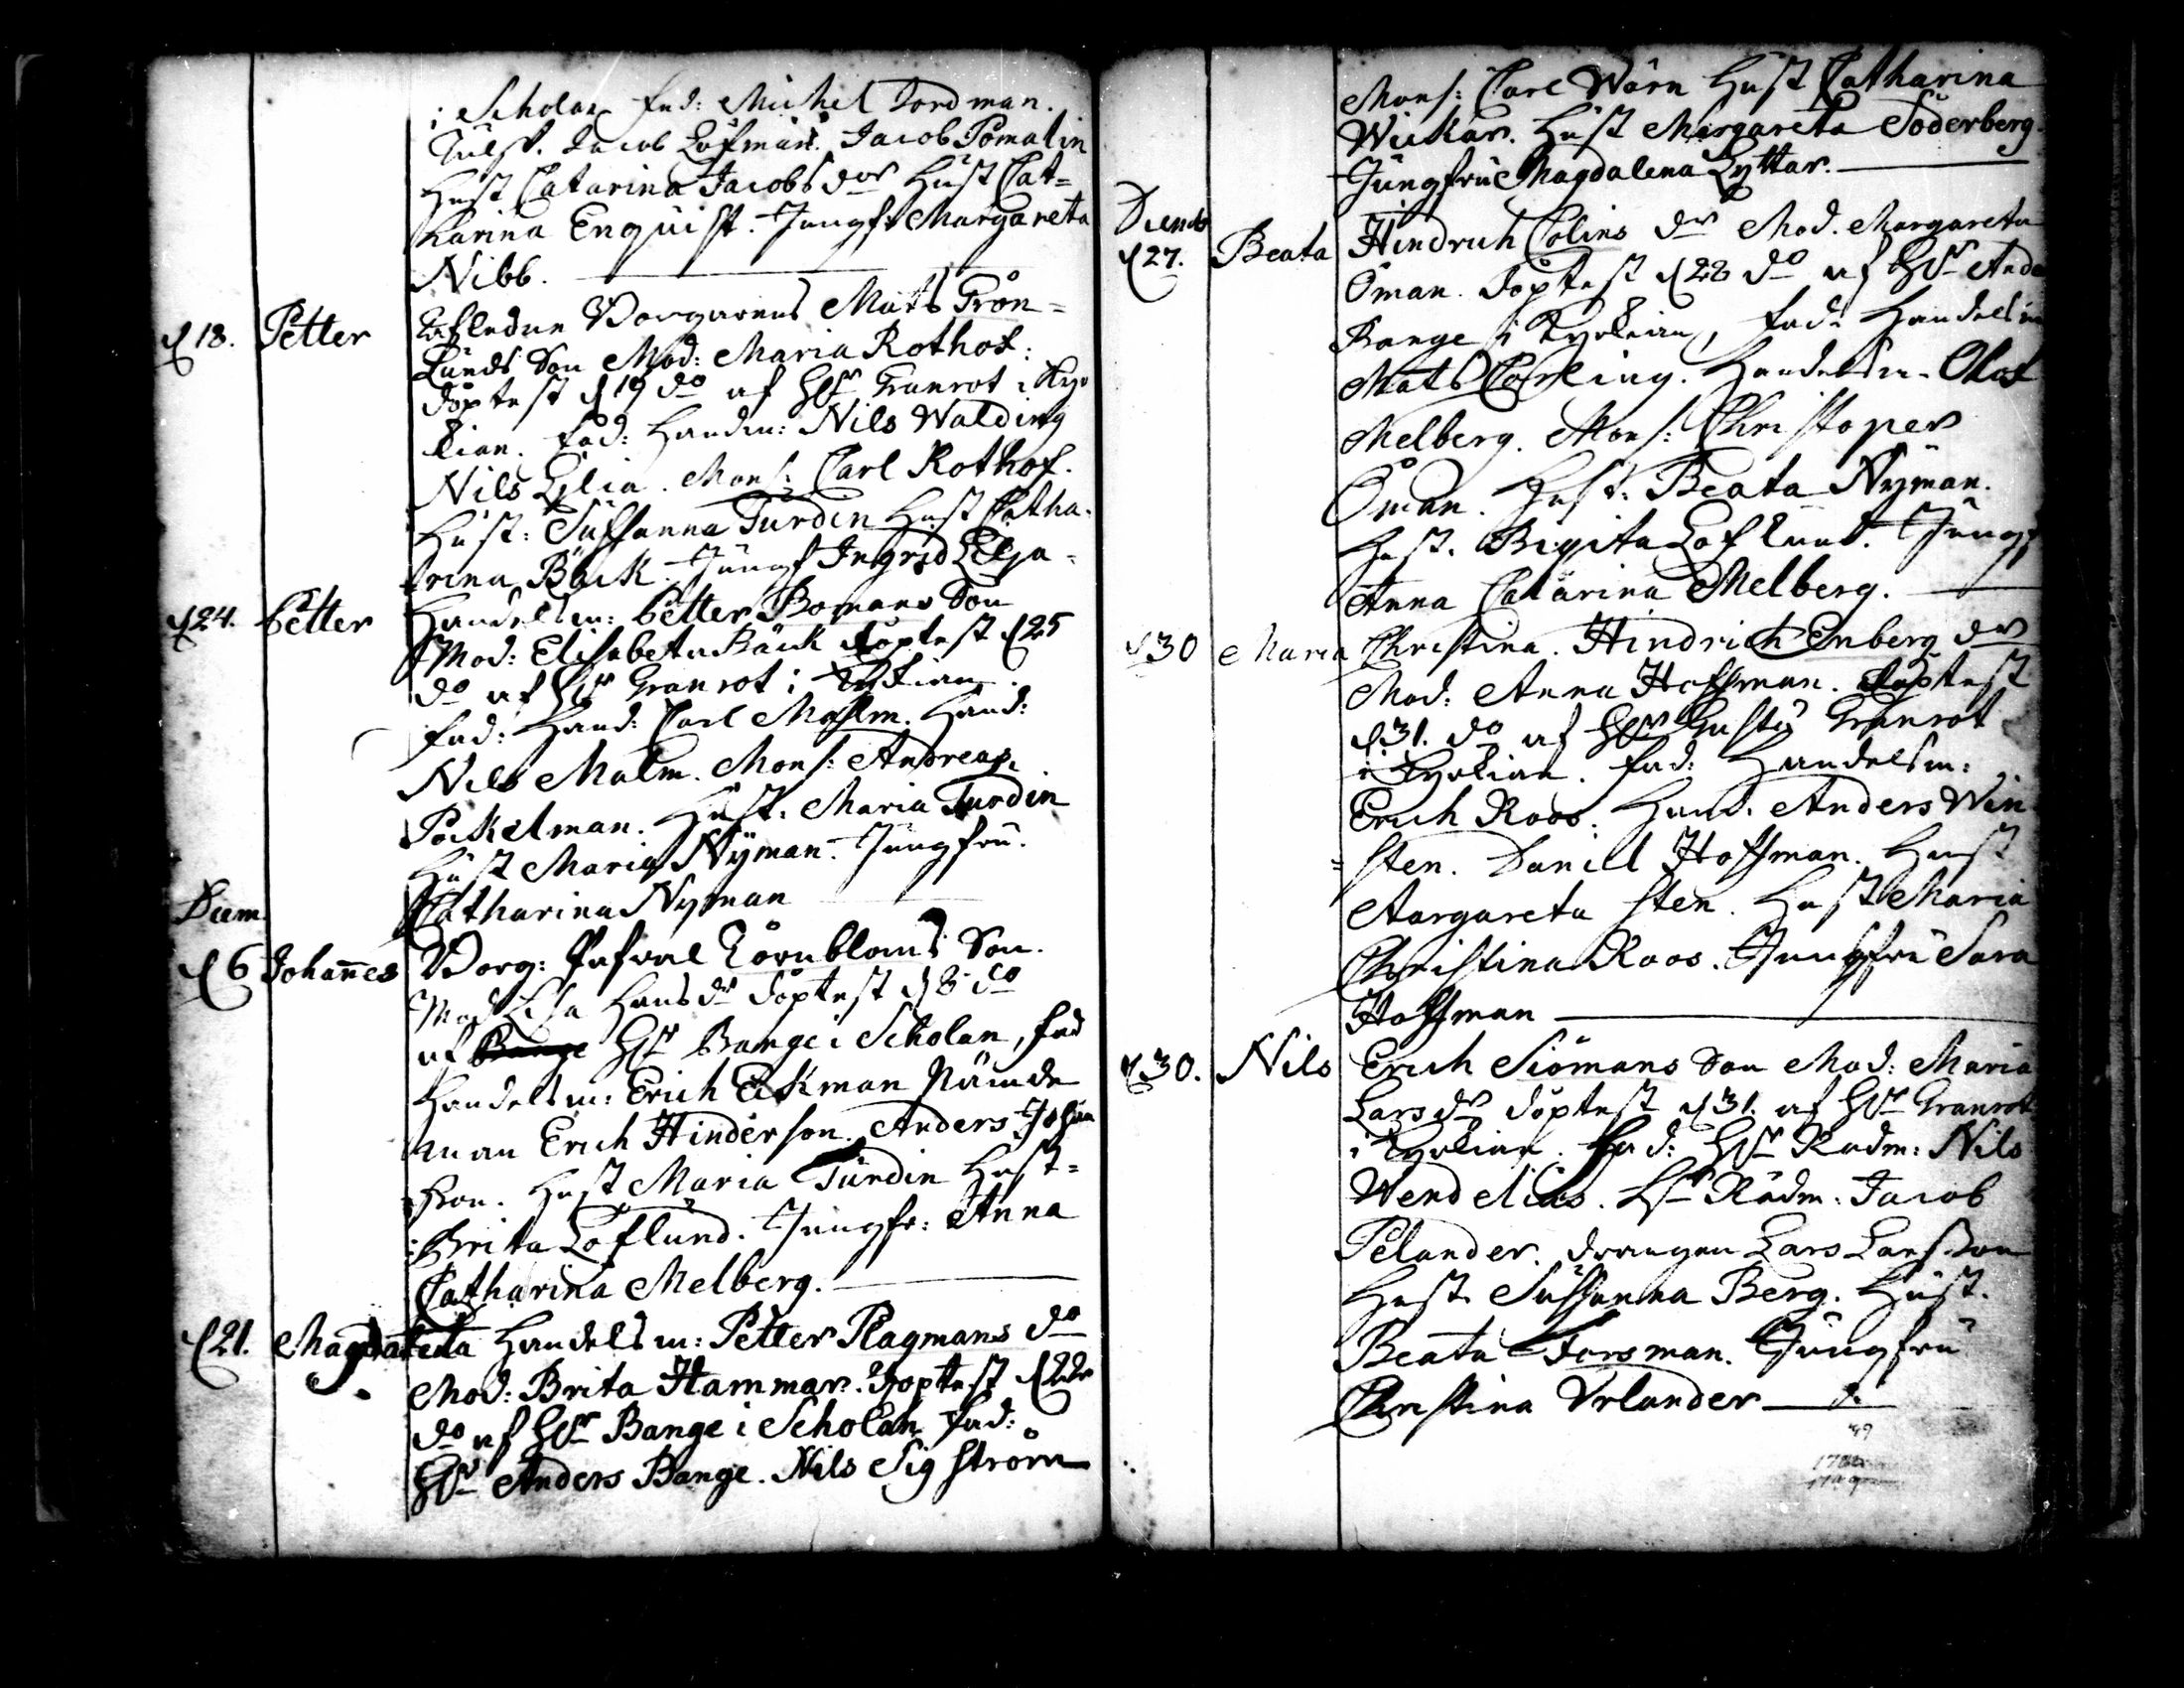 i Scholan fad: Michel Nordman.
Jacob Löfman. Jacob Pomalin
Hust Catarina Jacobs dor Hust Cat=
harina Enquist. Jungfr Margareta
Nibb.
d 18. Petter Borgarens Mats Grön=
lunds Son Mod: Maria Rothof:
döptest d 19 do af Hr Granrot i Kyr
kian. fad: Handm: Nils Walding
Nils Lilia. Mons: Carl Rothof.
Hust: Sussanna Turdin Hust Catha.
rina Bäck. Jungf Ingrid Lilja
d 24. Petter Handelsm: Petter Bomans Son
Mod: Elisabeta Bäck döptest d 25
do af Hr Granrot i Kyrkian.
fad: Hand: Carl Mahlm. Hand:
Nils Malm. Mons: Andreas
Pöckelman. Hust: Maria Turdin
Hust Maria Nyman. Jungfru.
Catharina Nyman
Decem.
d 6 Johannes Borg: Törnbloms Son.
Mod Lisa Hansdr döptest d 8 do
af Bange Hr Bange i Scholan, fad
Handelsm: Erich Ekman Nämde
man Erich Hinderson. Anders Johan
son. Hust Maria Turdin Hust=
Brita Löflund. Jungfr: Anna
Catharina Melberg.
d 21. Magdalena Handelsm: Petter Plagmans do
Mod: Brita Hammar. Döptest d 22
do af Hr Bange i Scholan fad:
Hr Anders Bange. Nils Sigström
Mons: Carl Wärn Hust Catharina
Wickar. Hust Margareta Söderberg.
Jungfru Magdalena Lyttar.
Decemb
d 27. Beata Hindrich Colins dr Mod. Margareta
Öman. döptest d 28 do af Hr And
Bange i Kyrkian, fad: Handelsm
Mats Carling. Handelsm. Olof
Melberg. Mons: Christoper
Öman. Hust: Beata Nyman.
Hust. Brigita Löflund. Jungf
Anna Catarina Melberg.
d 30 Maria Christina. Hindrich Enberg dr
Mod: Anna Hoffman. döptest
d 31. do af Hr Gustaf Granrot
i Kyrkian. fad: Handelsm:
Erich Roos. Hand. Anders Win
=sten. Daniel Hoffman. Hust
Margareta Sten. Hust Maria
Christina Roos. Jungfru Sara
Hoffman
d 30. Nils Erich Siömans Son Mod: Maria
Larsdr döptest d 31. af Hr Granrot
i Kyrkian. fad: Hr Radm: Nils
Wendelius. Hr Rådm: Jacob
Pelander. drängen Lars Larsson
Hust. Sussanna Berg. Hust.
Beata Forsman. Jungfru
Christina Urlander